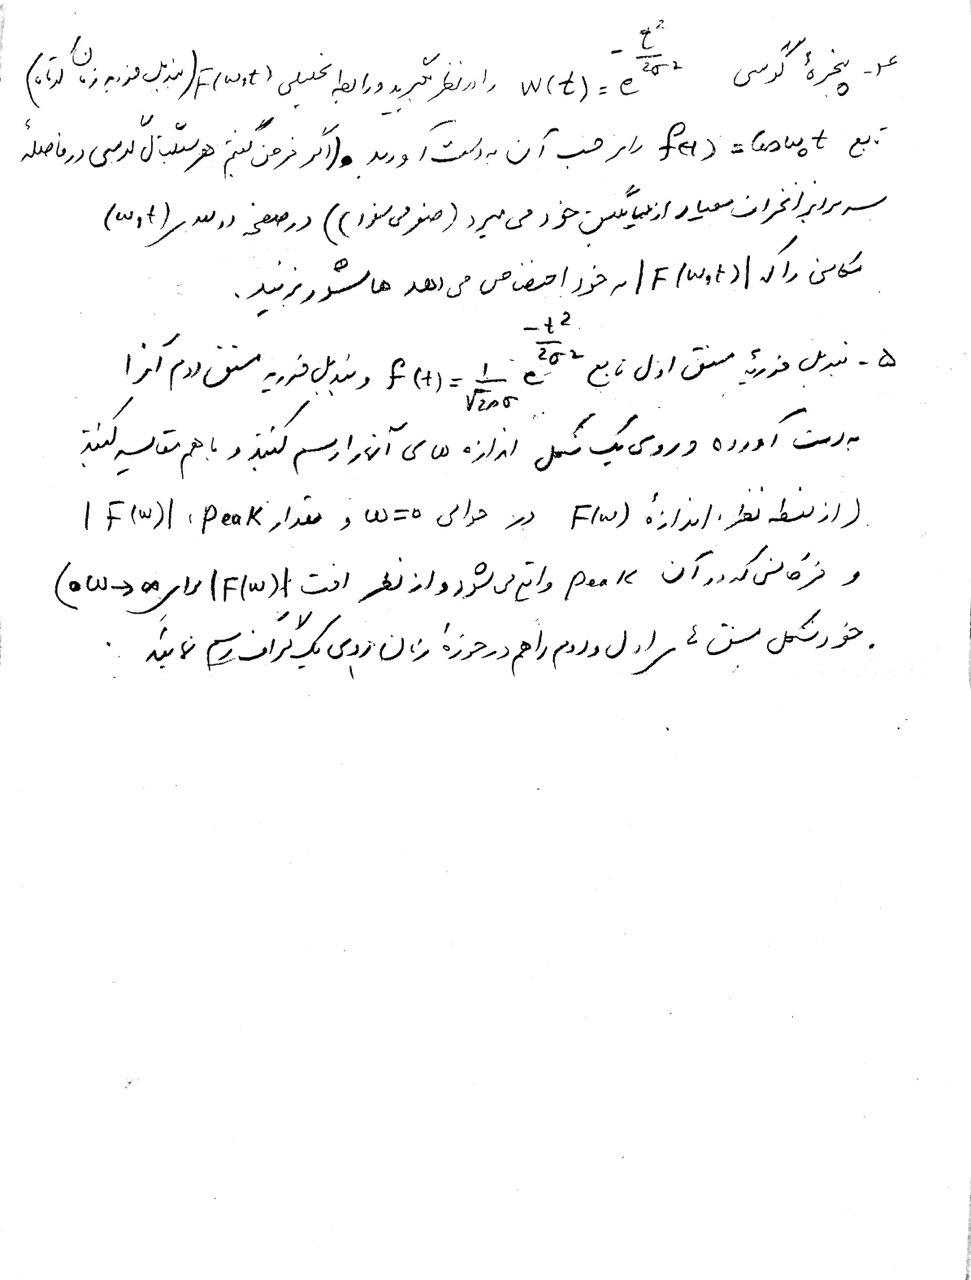 ۴- پنجرهٔ گوسی w(t) = e^{-t²/2σ²} را در نظر بگیرید و رابطه تحلیلی F(ω,t) (تبدیل فوریه زمان کوتاه)
تابع f(t) = cos ω₀t را بر حسب آن به دست آورید. (اگر فرض کنیم هر سیگنال گوسی در فاصلهٔ
سه برابر انحراف معیار از میانگین خود می میرد (صفر می شود)) در صفحه دو بعدی (ω,t)
مکانی را که |F(ω,t)| به خود اختصاص می دهد هاشور بزنید.
۵- تبدیل فوریهٔ مشتق اول تابع f(t) = 1/√2πσ e^{-t²/2σ²} و تبدیل فوریه مشتق دوم آنرا
به دست آورده و روی یک شکل اندازه های آنها را رسم کنید و با هم مقایسه کنید
(از نقطه نظر، اندازهٔ F(ω) در حوالی ω=0 و مقدار peak، |F(ω)|
و فرکانسی که در آن peak واقع می شود و از نظر افت |F(ω)| برای ω→∞)
. خود شکل مشتق های اول و دوم را هم در حوزهٔ زمان روی یک گراف رسم نمائید.